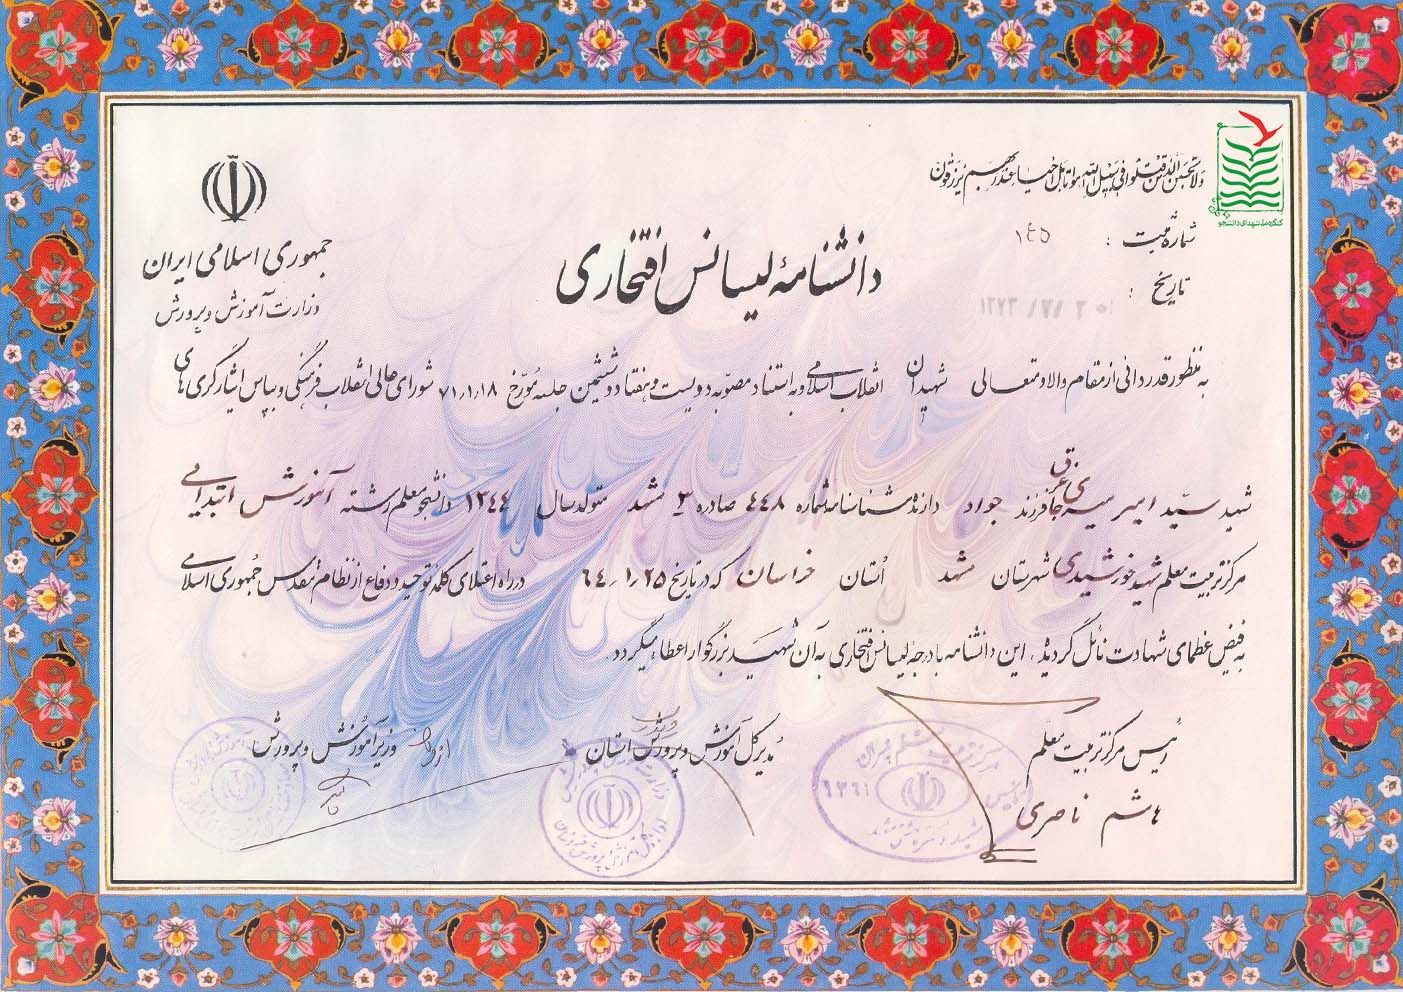 ولا تحسبن الذین قتلوا فی سبیل الله امواتا بل احیاء عند ربهم یرزقون
کنگره ملی شهدای دانشجو
شماره ثبت : ۱۴۵
تاریخ :
جمهوری اسلامی ایران
وزارت آموزش و پرورش
دانشنامه لیسانس افتخاری
به منظور قدردانی از مقام والا و متعالی شهیدان انقلاب اسلامی و به استناد مصوبه دویست و هفتاد و ششمین جلسه مورخ ۷۱/۱/۱۸ شورای عالی انقلاب فرهنگی و بپاس ایثارگری های
شهید سید امیر سیه جانی فرزند جواد دارنده شناسنامه شماره ۴۴۸ صادره ۲ مشهد متولد سال ۱۳۴۴ دانشجو معلم رشته آموزش ابتدایی
مرکز تربیت معلم شهید خورشیدی شهرستان مشهد استان خراسان که در تاریخ ۶۴/۱/۲۵ در راه اعتلای کلمه توحید و دفاع از نظام مقدس جمهوری اسلامی
به فیض عظمای شهادت نائل گردید، این دانشنامه با درجه لیسانس افتخاری به آن شهید بزرگوار اعطا میگردد.
رئیس مرکز تربیت معلم
هاشم ناصری
مدیر کل آموزش و پرورش استان
وزیر آموزش و پرورش